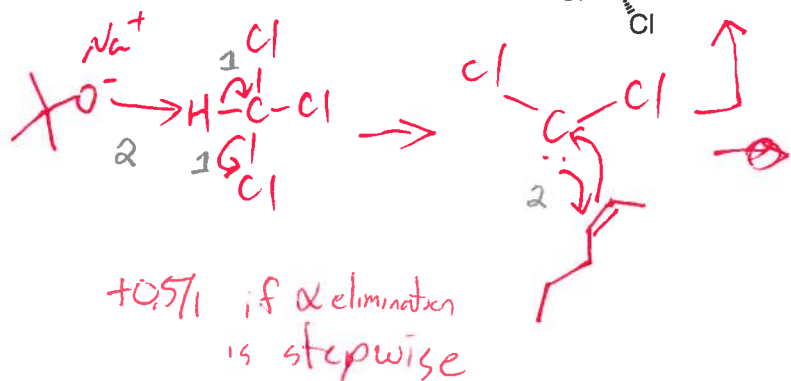 Cl
Na+
Cl
1
Cl
Cl
O-
H-C-Cl
C
2
1
Cl
2
+0.5/1 if α elimination
is stepwise